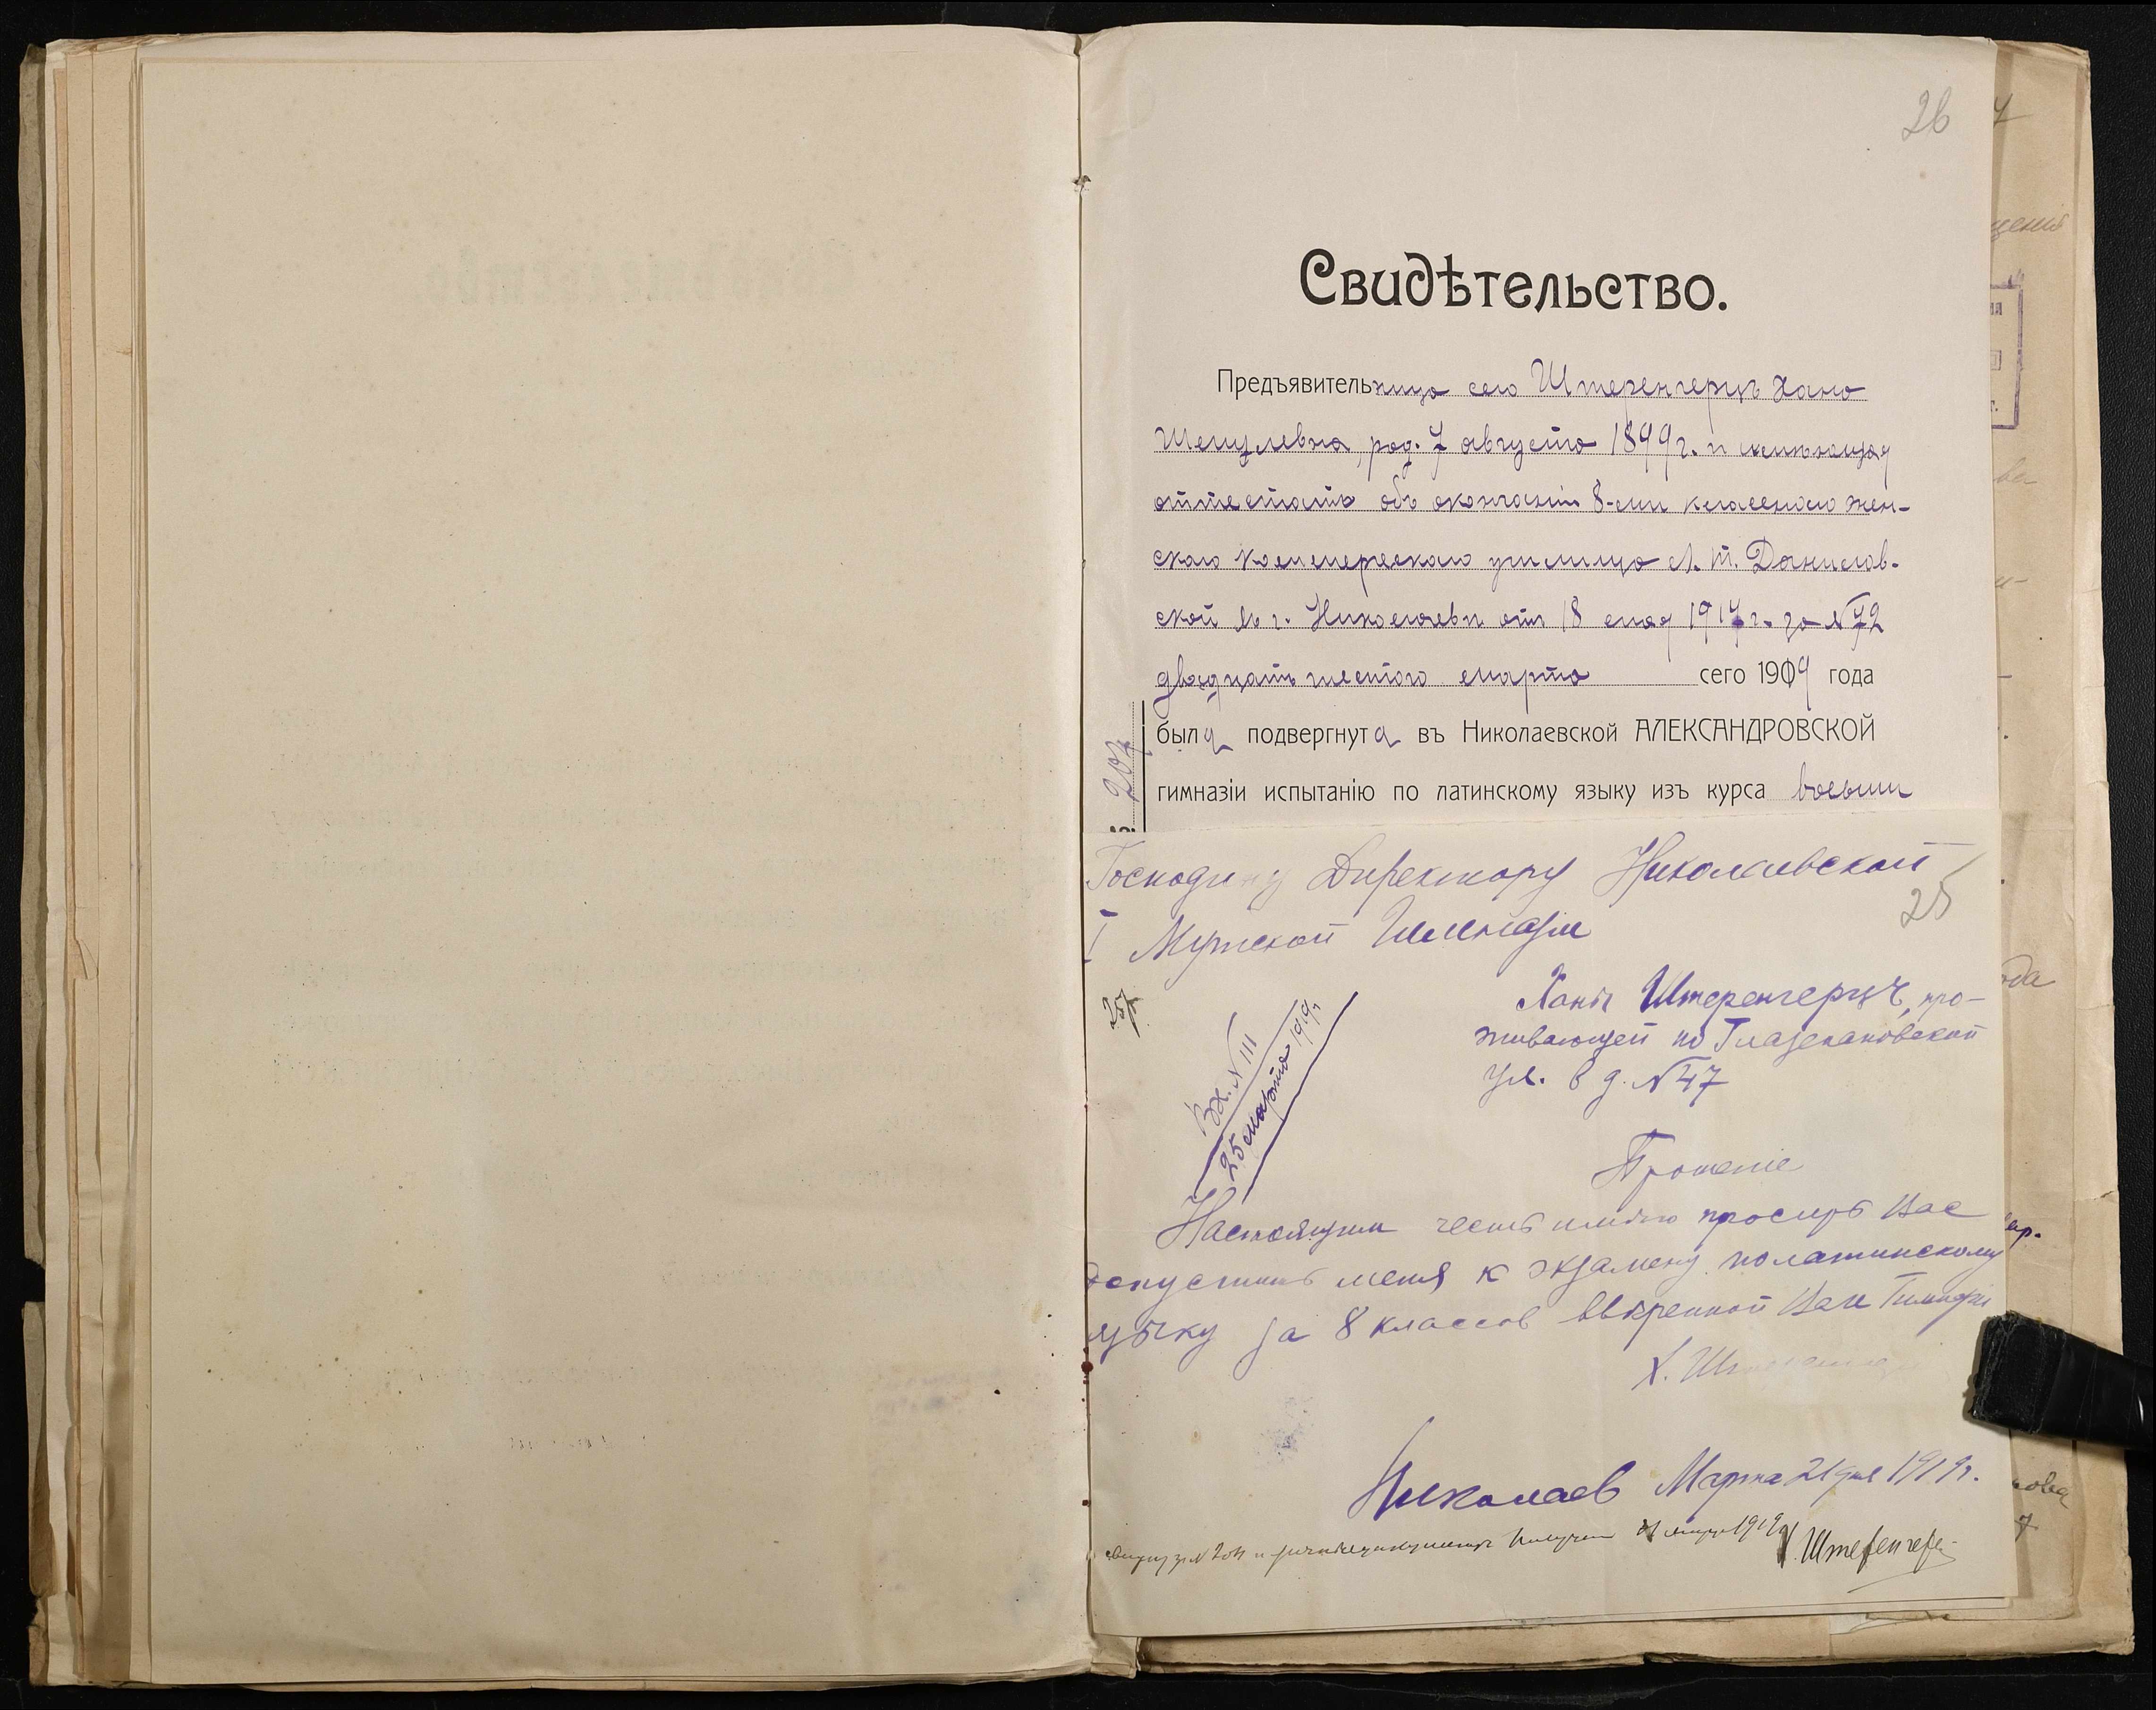 26
Свидѣтельство.
Предъявительница сего Штеренгерцъ Хана
Шепулевна, род. 7 августа 1899 г. и имѣющая
аттестатъ объ окончаніи 8-ми класснаго жен-
скаго коммерческаго училища Л. Т. Данилов-
ской въ г. Николаевѣ отъ 18 мая 1917 г. за № 72
двадцать шестого марта сего 1909 года
была подвергнута въ Николаевской АЛЕКСАНДРОВСКОЙ
гимназіи испытанію по латинскому языку изъ курса восьми
204
Господину Директору Николаевской
25
I Мужской Гимназіи
Ханы Штеренгерцъ, про-
живающей по Глазенаповской
ул. в д. № 47
Вх. № 111
25 марта 1919 г.
Прошеніе
Настоящим честь имѣю просить Вас
допустить меня к экзамену по латинскому
языку за 8 классов ввѣренной Вам Гимназіи
Х.
Николаев Марта 21 дня 1919 г.
получил марта 1919 г. Х. Штеренгерц